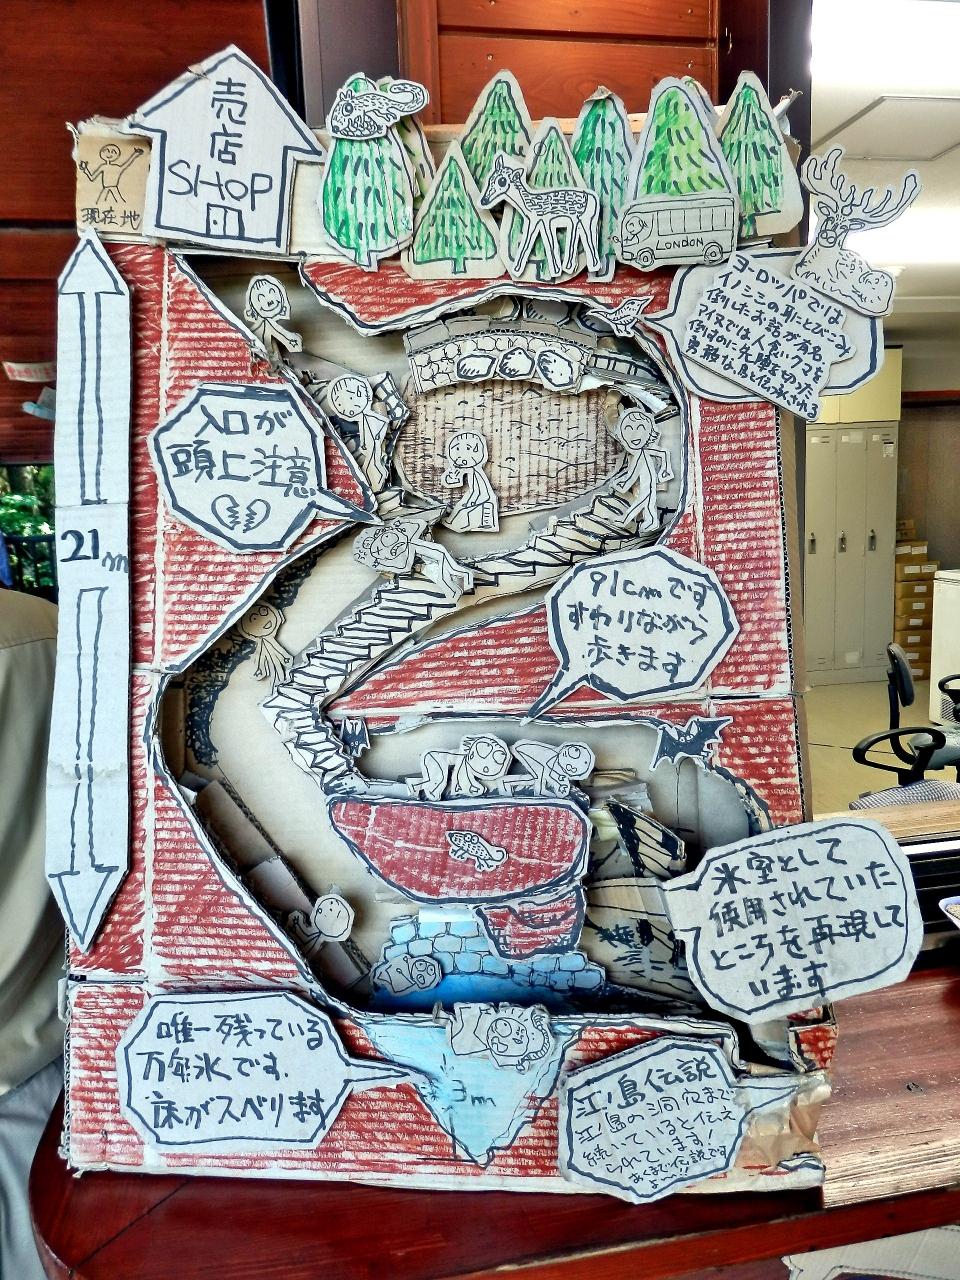 売店
SHOP
現在地
LONDON
ヨーロッパでは
イノシシの耳にとびこみ
倒したお話が有名
アイヌでは人食いクマを
倒すのに先陣を切った
勇敢な鳥と伝承される
入口が
頭上注意
21m
91cmです
すわりながら
歩きます
氷室として
使用されていた
ところを再現して
います
唯一残っている
万年氷です。
床がスベリます
3m
江ノ島伝説
江ノ島の洞穴まで
続いていると伝え
られています!
あくまで伝説です
よ〜!!